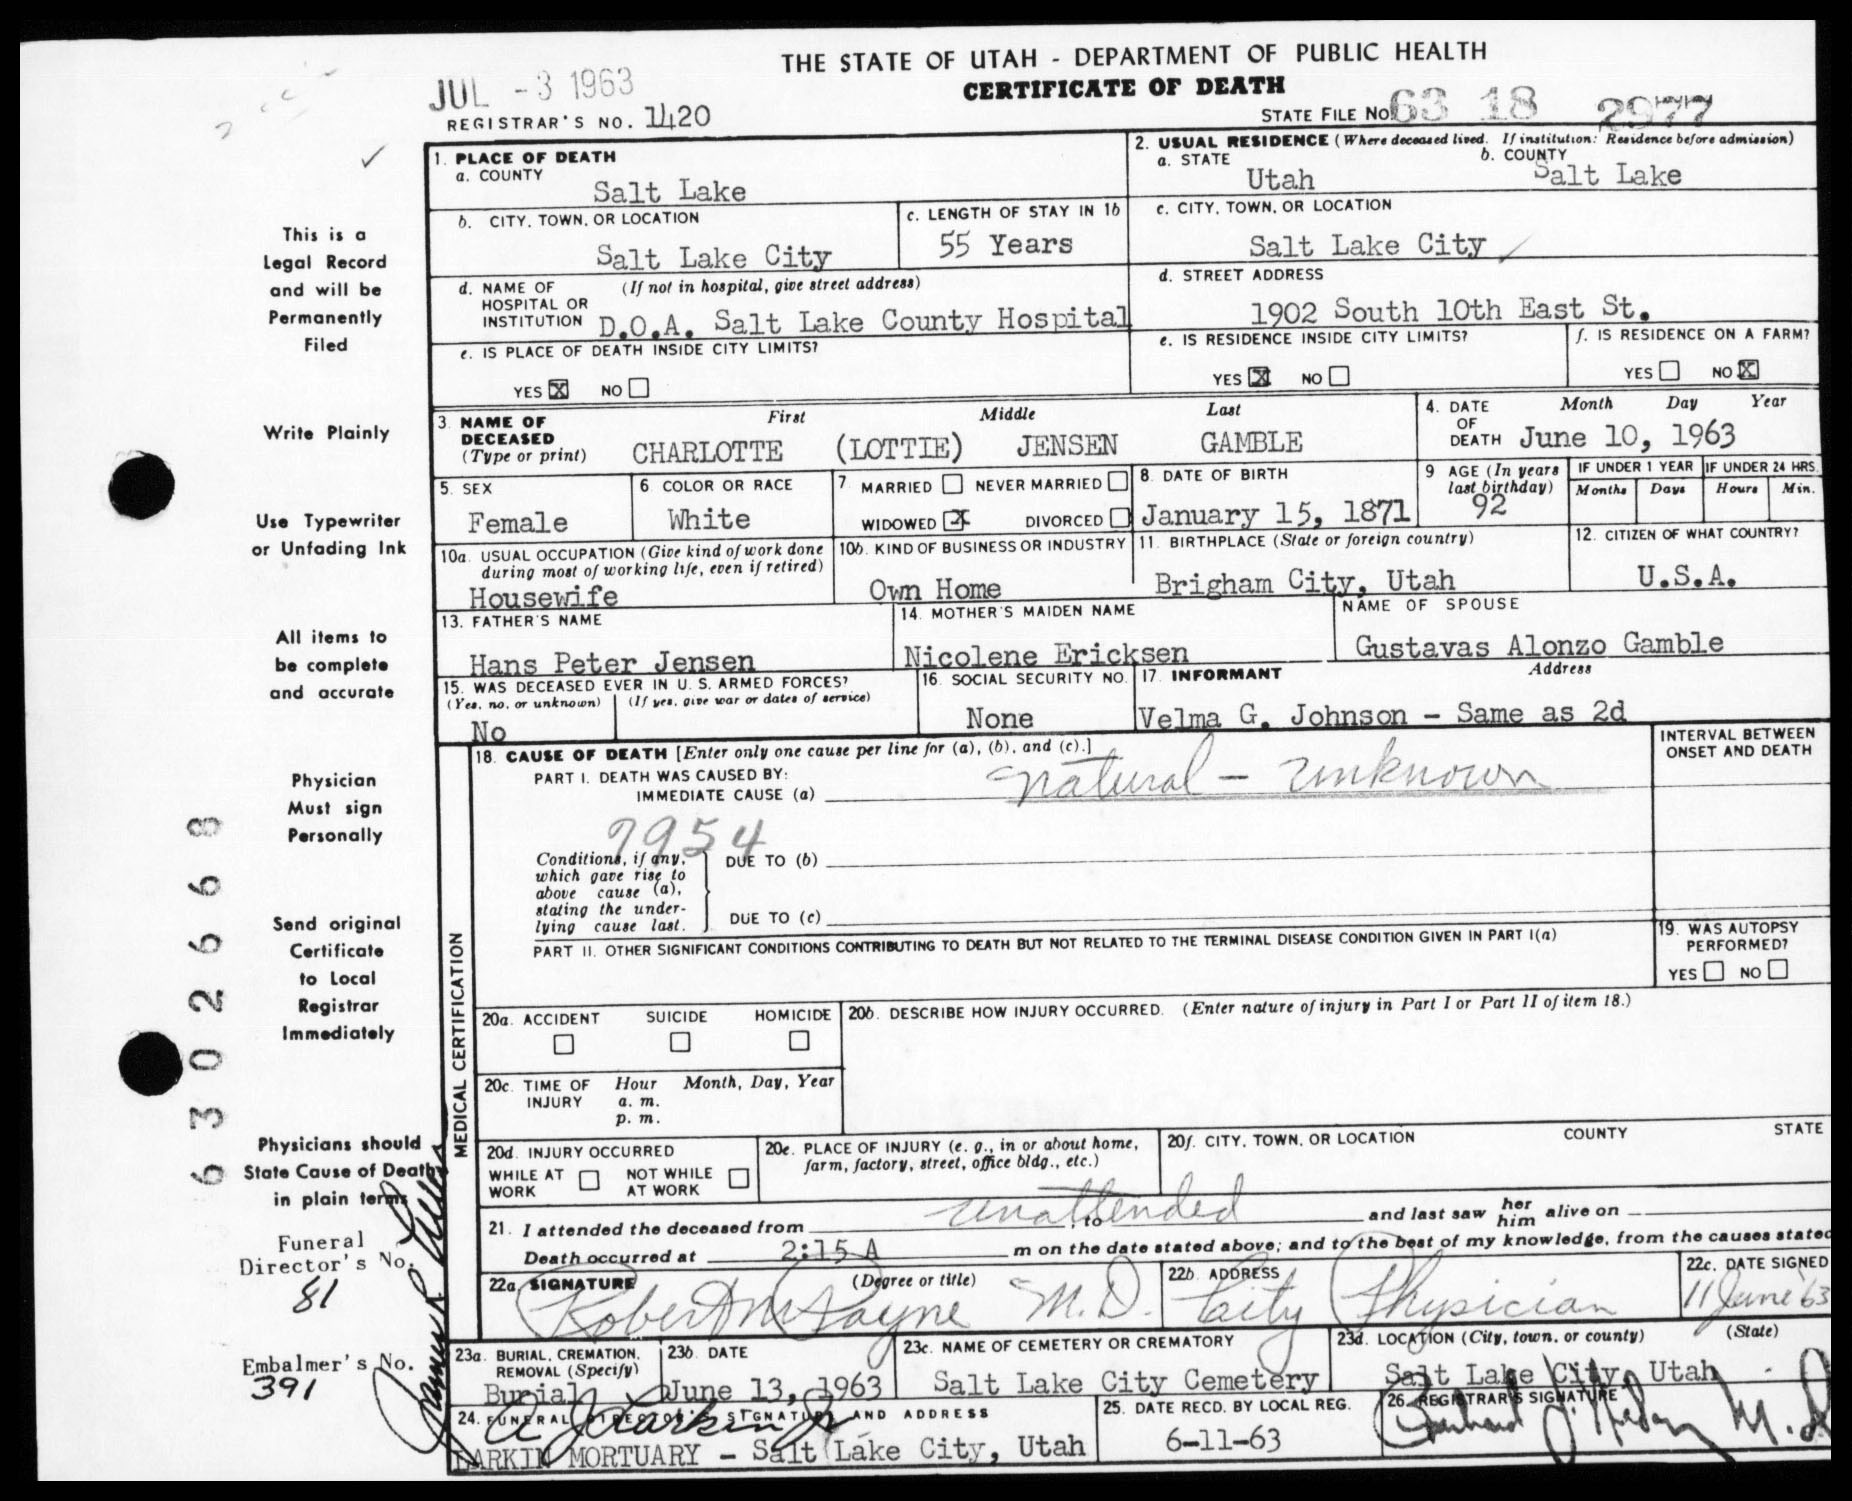 THE STATE OF UTAH - DEPARTMENT OF PUBLIC HEALTH
CERTIFICATE OF DEATH
JUL - 3 1963
REGISTRAR'S NO. 1420
STATE FILE NO. 63 18 2977
1. PLACE OF DEATH
a. COUNTY
Salt Lake
2. USUAL RESIDENCE (Where deceased lived. If institution: Residence before admission)
a. STATE
Utah
b. COUNTY
Salt Lake
b. CITY, TOWN, OR LOCATION
Salt Lake City
c. LENGTH OF STAY IN 1b
55 Years
c. CITY, TOWN, OR LOCATION
Salt Lake City
d. NAME OF HOSPITAL OR INSTITUTION
(If not in hospital, give street address)
D.O.A. Salt Lake County Hospital
d. STREET ADDRESS
1902 South 10th East St.
e. IS PLACE OF DEATH INSIDE CITY LIMITS?
YES X NO
e. IS RESIDENCE INSIDE CITY LIMITS?
YES X NO
f. IS RESIDENCE ON A FARM?
YES NO X
3. NAME OF DECEASED (Type or print)
First Middle Last
CHARLOTTE (LOTTIE) JENSEN GAMBLE
4. DATE OF DEATH
Month Day Year
June 10, 1963
5. SEX
Female
6. COLOR OR RACE
White
7. MARRIED NEVER MARRIED
WIDOWED X DIVORCED
8. DATE OF BIRTH
January 15, 1871
9 AGE (In years last birthday)
92
IF UNDER 1 YEAR
Months Days
IF UNDER 24 HRS.
Hours Min.
10a. USUAL OCCUPATION (Give kind of work done during most of working life, even if retired)
Housewife
10b. KIND OF BUSINESS OR INDUSTRY
Own Home
11. BIRTHPLACE (State or foreign country)
Brigham City, Utah
12. CITIZEN OF WHAT COUNTRY?
U.S.A.
13. FATHER'S NAME
Hans Peter Jensen
14. MOTHER'S MAIDEN NAME
Nicolene Ericksen
NAME OF SPOUSE
Gustavas Alonzo Gamble
15. WAS DECEASED EVER IN U. S. ARMED FORCES?
(Yes, no, or unknown) (If yes, give war or dates of service)
No
16. SOCIAL SECURITY NO.
None
17. INFORMANT Address
Velma G. Johnson - Same as 2d
MEDICAL CERTIFICATION
18. CAUSE OF DEATH [Enter only one cause per line for (a), (b), and (c).]
PART I. DEATH WAS CAUSED BY:
IMMEDIATE CAUSE (a) natural - unknown
INTERVAL BETWEEN ONSET AND DEATH
7954
Conditions, if any, which gave rise to above cause (a), stating the underlying cause last.
DUE TO (b)
DUE TO (c)
PART II. OTHER SIGNIFICANT CONDITIONS CONTRIBUTING TO DEATH BUT NOT RELATED TO THE TERMINAL DISEASE CONDITION GIVEN IN PART I(a)
19. WAS AUTOPSY PERFORMED?
YES NO
20a. ACCIDENT SUICIDE HOMICIDE
20b. DESCRIBE HOW INJURY OCCURRED. (Enter nature of injury in Part I or Part II of item 18.)
20c. TIME OF INJURY
Hour Month, Day, Year
a. m.
p. m.
20d. INJURY OCCURRED
WHILE AT WORK NOT WHILE AT WORK
20e. PLACE OF INJURY (e. g., in or about home, farm, factory, street, office bldg., etc.)
20f. CITY, TOWN, OR LOCATION COUNTY STATE
21. I attended the deceased from unattended, to and last saw her him alive on
Death occurred at 2:15 A m on the date stated above; and to the best of my knowledge, from the causes stated
22a. SIGNATURE (Degree or title)
Robert M Payne M.D.
22b. ADDRESS
City Physician
22c. DATE SIGNED
11 June '63
23a. BURIAL, CREMATION, REMOVAL (Specify)
Burial
23b. DATE
June 13, 1963
23c. NAME OF CEMETERY OR CREMATORY
Salt Lake City Cemetery
23d. LOCATION (City, town, or county) (State)
Salt Lake City, Utah
24. FUNERAL DIRECTOR'S SIGNATURE AND ADDRESS
LARKIN MORTUARY - Salt Lake City, Utah
25. DATE RECD. BY LOCAL REG.
6-11-63
26. REGISTRAR'S SIGNATURE
This is a
Legal Record
and will be
Permanently
Filed
Write Plainly
Use Typewriter
or Unfading Ink
All items to
be complete
and accurate
Physician
Must sign
Personally
Send original
Certificate
to Local
Registrar
Immediately
Physicians should
State Cause of Death
in plain terms
Funeral
Director's No.
81
Embalmer's No.
391
6302668